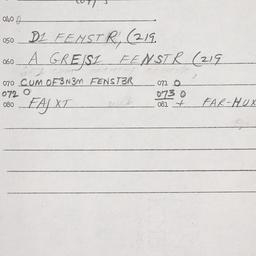 040 0
050 DI FENSTR, (219.
060 A GREJSI FENSTR (219
070 CUM OF3N3M FENST3R 071 0
072 0 073 0
080 FAJ XT 081 + FAR-MUX